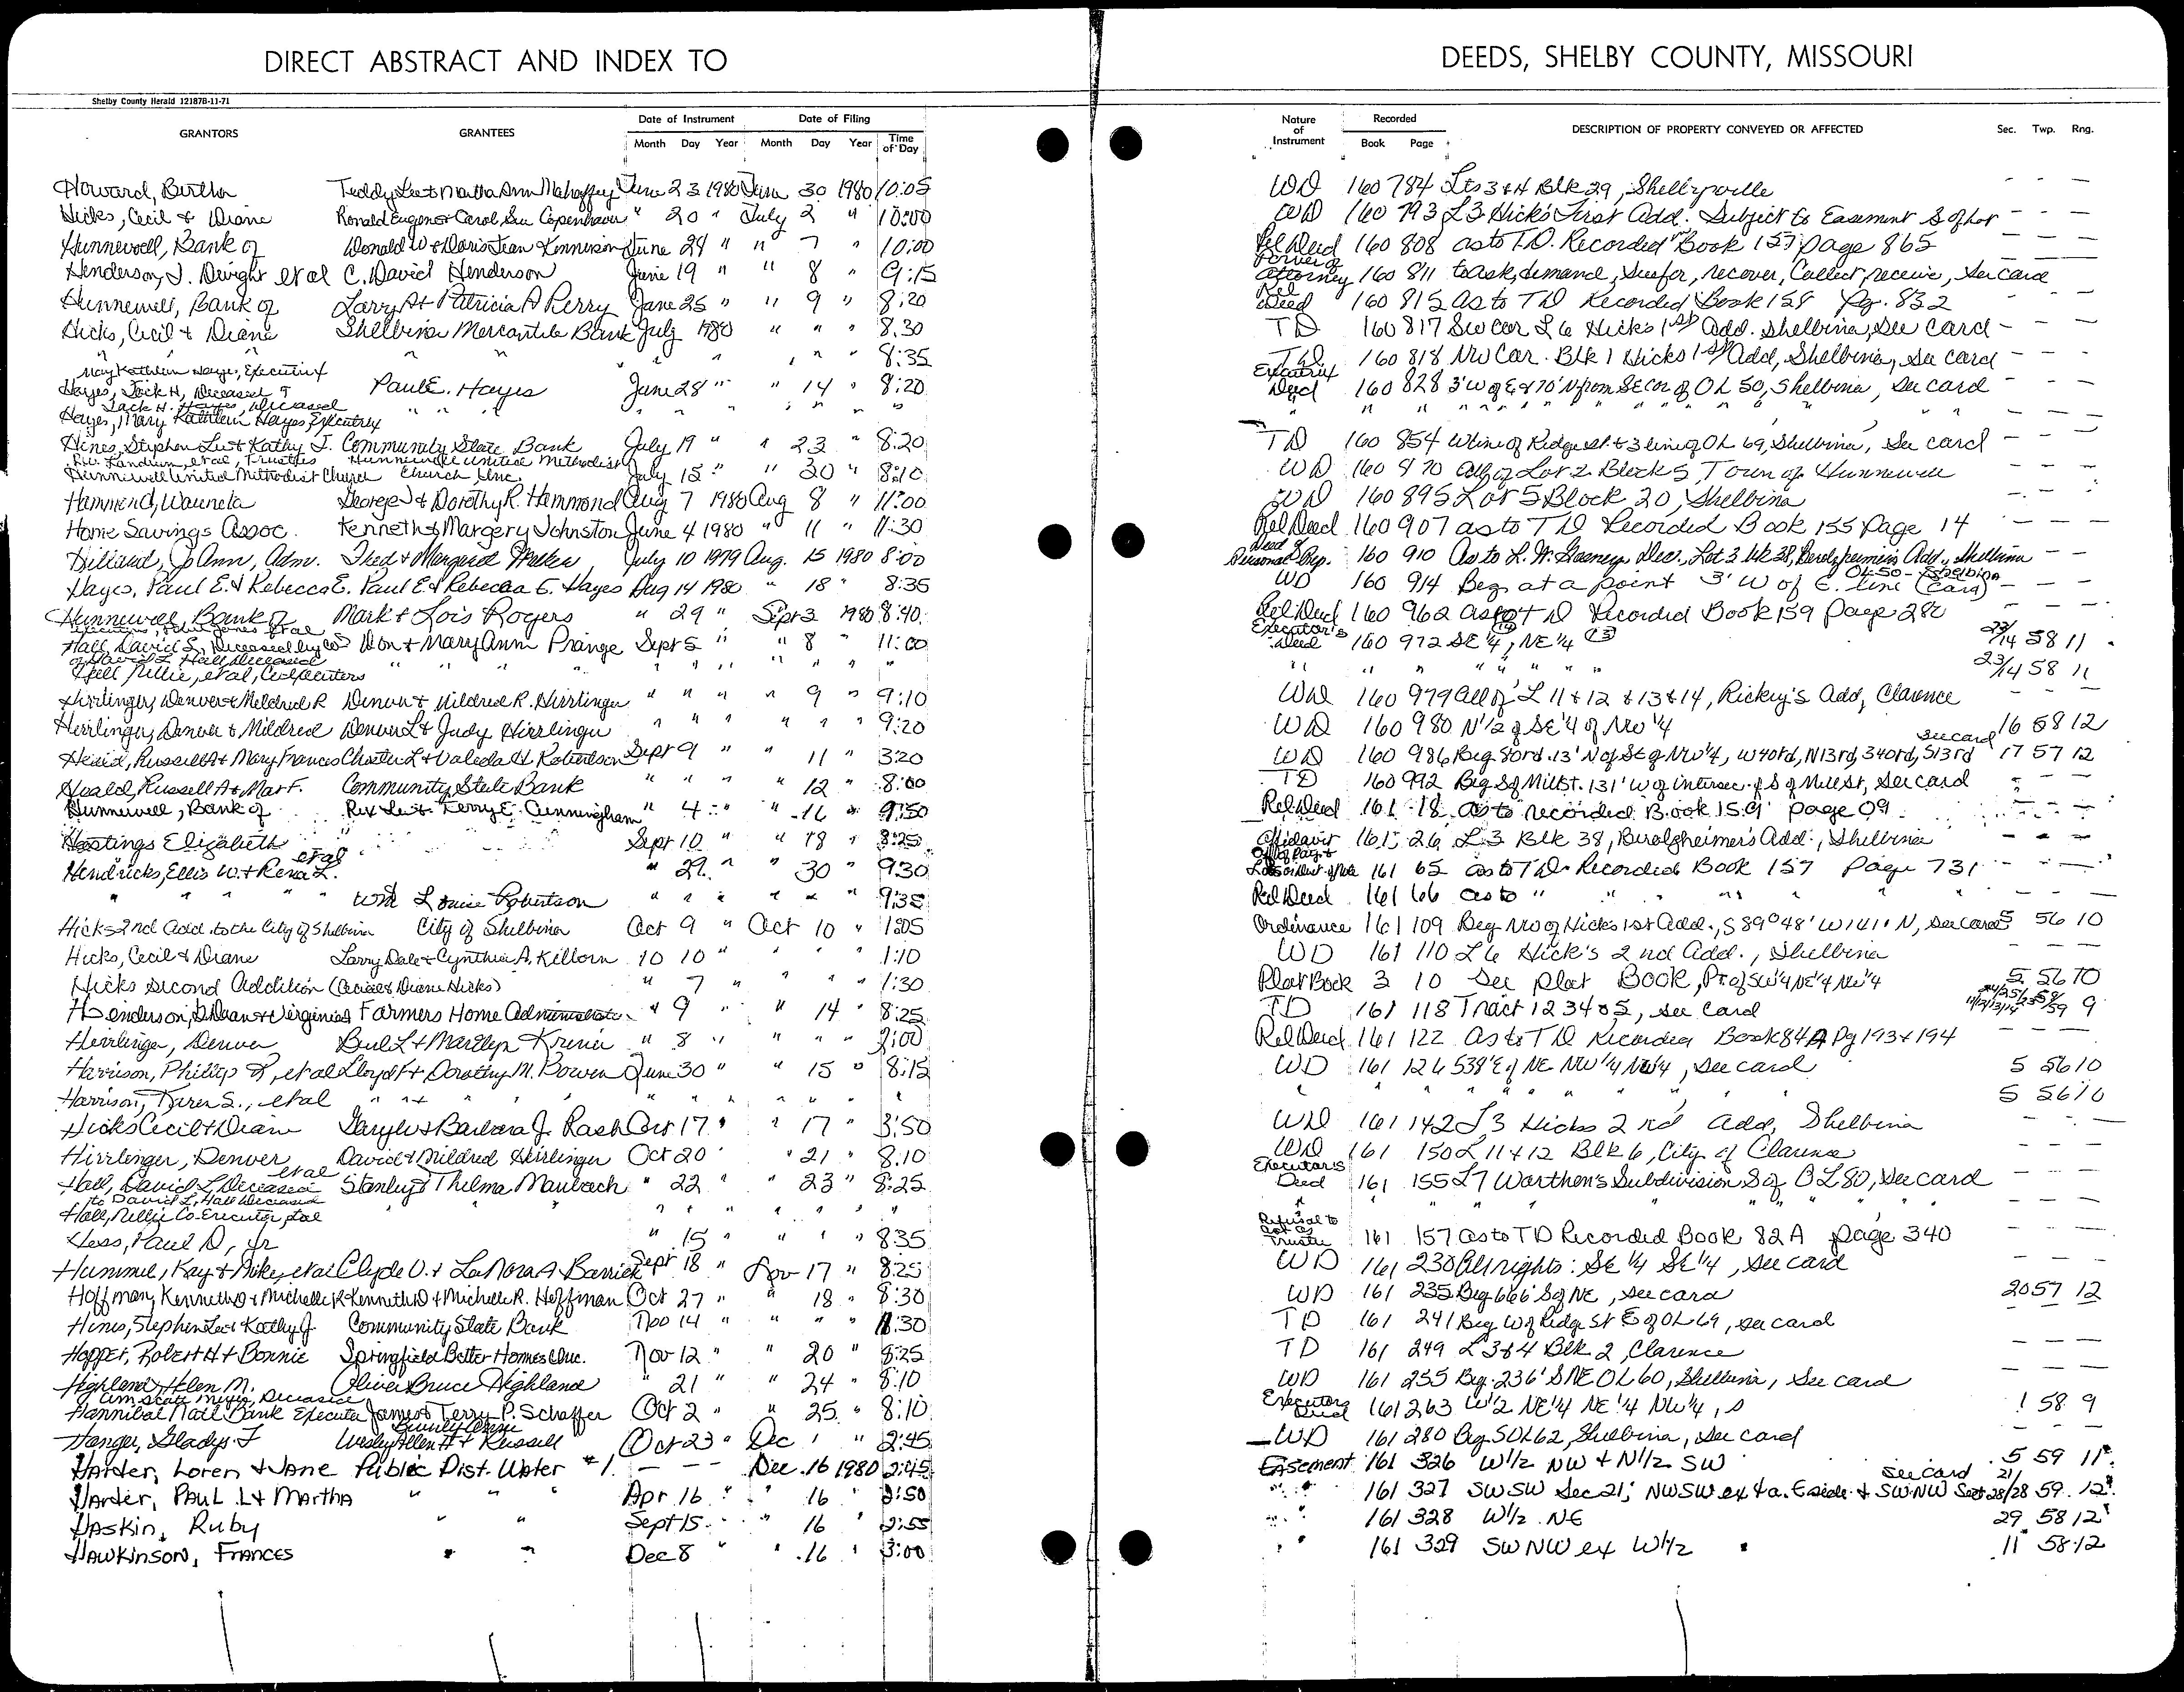 DIRECT ABSTRACT AND INDEX TO DEEDS, SHELBY COUNTY, MISSOURI
Shelby County Herald 12187B-11-71
GRANTORS GRANTEES Date of Instrument Month Day Year Date of Filing Month Day Year Time of Day Nature of Instrument Recorded Book Page DESCRIPTION OF PROPERTY CONVEYED OR AFFECTED Sec. Twp. Rng.
Howard, Bertha Teddy Lee & Martha Ann Mahaffey June 23 1980 June 30 1980 10:05 WD 160 784 Lts 3 & 4 Blk 29, Shelbyville - - -
Hicks, Cecil & Diane Ronald Eugene & Carol Sue Copenhaver " 20 " July 2 " 10:00 WD 160 793 L3 Hick's First Add. Subject to Easement S of Lot - - -
Hunnewell, Bank of Donald W & Doris Jean Kennison June 24 " " 7 " 10:00 Rel Deed 160 808 as to T.D. Recorded Book 157 page 865 - - -
Henderson, J. Dwight et al C. David Henderson June 19 " " 8 " 9:15 Power of Attorney 160 811 to ask, demand, sue for, recover, Collect, receive, See card
Hunnewell, Bank of Larry A & Patricia A Perry June 25 " " 9 " 8:20 Rel Deed 160 815 as to TD Recorded Book 158 Pg. 832 - - -
Hicks, Cecil & Diane Shelbina Mercantile Bank July 1980 " " " 8:30 TD 160 817 SW Cor L 6 Hick's 1st Add. Shelbina, See Card - - -
" " " " " " " 8:35 TD 160 818 NW Cor. Blk 1 Hicks 1st Add, Shelbina, See card - - -
May Kathleen Hayes, Executrix
Hayes, Jack H, Deceased Paul E. Hayes June 28 " " 14 " 8:20 Executrix Deed 160 828 3' W of E & 70' N from SE cor of OL 50, Shelbina, See card - - -
Jack H. Hayes, Deceased
Hayes, Mary Kathleen Hayes Executrix " " " " " " " "
Hines, Stephen Lee & Kathy J. Community State Bank July 19 " " 23 " 8:20 TD 160 854 W line of Ridge St. & S line of OL 69, Shelbina, See card - - -
Landrum, et al, Trustees Hunnewell United Methodist
Hunnewell United Methodist Church Church Inc. July 15 " " 30 " 8:10 WD 160 870 All of Lot 2 Block 5 Town of Hunnewell - - -
Hammond, Wauneta George J & Dorothy R. Hammond Aug 7 1980 Aug 8 " 11:00 WD 160 895 Lot 5 Block 20, Shelbina - - -
Home Savings Assoc. Kenneth & Margery Johnston June 4 1980 " 11 " 11:30 Rel Deed 160 907 as to TD Recorded Book 155 Page 14 - - -
Hilliard, Jo Ann, Adm. July 10 1979 Aug. 15 1980 8:00 Deed of Personal Rep. 160 910 As to Dec., Lot 3 blk 38, Add., Shelbina - -
Hays, Paul E. & Rebecca E. Paul E & Rebecca E. Hayes Aug 14 1980 " 18 " 8:35 WD 160 914 Beg at a point 3' W of E. line OL 50 - Shelbina (Card) - - -
Hunnewell Bank of Mark & Lois Rogers " 29 " Sept 3 1980 8:40 Rel Deed 160 962 as to TD Recorded Book 159 page 282 - - -
Hall, David L. Deceased by Co Don & Mary Ann Prange Sept 5 " " 8 " 11:00 Executor's Deed 160 972 SE 1/4, NE 1/4 23/14 58 11
of David L Hall Deceased
Hall Nellie, et al, CoExecutors " " " " " " " 23/14 58 11
Hirrlinger, Denver & Mildred R Denver & Mildred R. Hirrlinger " " " " 9 " 9:10 WD 160 979 all of L 11 & 12 & 13 & 14, Rickey's Add, Clarence - - -
Hirrlinger, Denver & Mildred Denver L & Judy Hirrlinger " " " " " " 9:20 WD 160 980 N 1/2 of SE 1/4 of NW 1/4 16 58 12
Heald, Russell A & Mary Frances Chester L & Valeda H. Robertson Sept 9 " " 11 " 3:20 WD 160 986 Beg 8 ord. 13' N of SE of NW 1/4, W 40rd, N13rd, 340rd, S13rd See card 17 57 12
Heald, Russell A & Mar F. Community State Bank " " " " 12 " 8:00 TD 160 992 Beg S of Mill St. 131' W of intersec. of S of Mill St, See card - - -
Hunnewell, Bank of Rex Lee & Terry E. Cunningham " 4 " " 16 " 9:50 Rel Deed 161 18 as to recorded Book 159 page 09 - - -
Hastings Elizabeth Sept 10 " " 18 " 8:25 Affidavit 161 26 L3 Blk 38, Add., Shelbina - - -
Hendricks, Ellis W. & Rena L. et al " 29 " " 30 " 9:30 161 65 as to TD Recorded Book 157 Page 731 - - -
" " " " Louise Robertson " " " " " " 9:35 Rel Deed 161 66 as to " " " " " "
Hicks 2nd Add. to the City of Shelbina City of Shelbina Oct 9 " Oct 10 " 1:05 Ordinance 161 109 Beg NW of Hicks 1st Add., S 89°48' W 141' N, See Card 5 56 10
Hicks, Cecil & Diane Larry Dale & Cynthia A. Killorn 10 10 " " " " 1:10 WD 161 110 L6 Hick's 2nd Add., Shelbina - - -
Hicks Second Addition (Cecil & Diane Hicks) " 7 " " " " 1:30 Plat Book 3 10 See Plat Book, Pt of SW 1/4 NE 1/4 NW 1/4 5 56 10
Henderson, & Virginia Farmers Home Administration " 9 " " 14 " 8:25 TD 161 118 Tract 1 2 3 4 & 5, See Card 9
Hirrlinger, Denver & Marilyn " 8 " " " " 2:00 Rel Deed 161 122 As to TD Recorded Book 84A Pg 193 & 194 - - -
Harrison, Phillip R, et al Lloyd F & Dorothy M. Bowen June 30 " " 15 " 8:15 WD 161 126 538' E of NE NW 1/4 NW 1/4, See card 5 56 10
Harrison, Karen S., et al " " " " " " " " 5 56 10
Hicks Cecil & Diane & Barbara J. Rash Oct 17 " " 17 " 3:50 WD 161 142 L3 Hicks 2nd Add, Shelbina - - -
Hirrlinger, Denver David & Mildred Hirrlinger Oct 20 " " 21 " 8:10 WD 161 150 L 11 & 12 Blk 6, City of Clarence - - -
Hall, David L Deceased et al Stanley & Thelma Maubach " 22 " " 23 " 8:25 Executor's Deed 161 155 L7 Warthen's Subdivision S of OL 80, See card - - -
to David L, Hall Deceased
Hall, Nellie Co-Executor, et al " " " " " " "
Hess, Paul D, Jr " 15 " " " " 8:35 Refusal to act as Trustee 161 157 as to TD Recorded Book 82A page 340 - - -
Hummel, Kay & Mike, et al Clyde O. & LaNora A Barrick Sept 18 " Nov 17 " 8:25 WD 161 230 All rights: SE 1/4 SE 1/4, See card - - -
Hoffman, Kenneth D & Michelle R Kenneth D & Michelle R. Hoffman Oct 27 " " 18 " 8:30 WD 161 235 Beg 666 S of NE, See card 20 57 12
Hines, Stephen Lee & Kathy J Community State Bank Nov 14 " " " " 11:30 TD 161 241 Beg W of Ridge St E of OL 69, See card - - -
Hopper, Robert H & Bonnie Springfield Better Homes Inc. Nov 12 " " 20 " 8:25 TD 161 249 L 3 & 4 Blk 2, Clarence - - -
Highland, Helen M. Oliver Bruce Highland " 21 " " 24 " 8:10 WD 161 255 Beg. 236' S NE OL 60, Shelbina, See card - - -
Deceased
Hannibal Natl Bank Executor James & Terry P. Schaffer Oct 2 " " 25 " 8:10 Executors Deed 161 263 W 1/2 NE 1/4 NE 1/4 NW 1/4, S 1 58 9
Hanger, Gladys F Wesley Allen H & Russell Oct 23 " Dec 1 " 2:45 WD 161 280 Beg S OL 62, Shelbina, See card - - -
Harder, Loren & Jane Public Dist. Water #1 - - - Dec. 16 1980 2:45 Easement 161 326 W1/2 NW & N1/2 SW 5 59 11
Harder, Paul L & Martha " " " Apr 16 " " 16 " 2:50 " 161 327 SWSW Sec 21; NWSW ex 4a. E side & SW NW Sect 28 See card 21/28 59 12
Haskin, Ruby " " Sept 15 " " 16 " 2:55 " 161 328 W1/2 NE 29 58 12
Hawkinson, Frances " " Dec 8 " " 16 " 3:00 " 161 329 SWNW ex W1/2 11 58 12